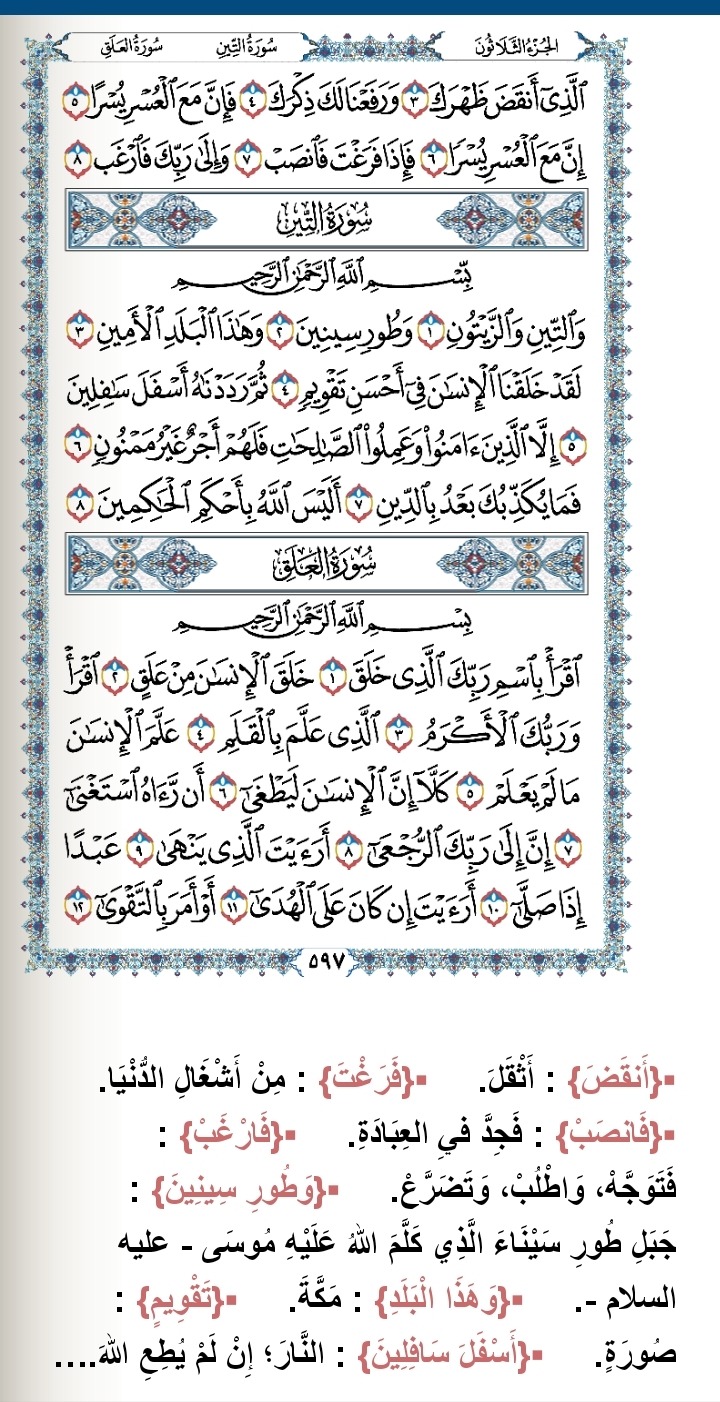 الجُزْءُ الثَّلَاثُونَ سُورَةُ التِّينِ سُورَةُ العَلَقِ
ٱلَّذِىٓ أَنقَضَ ظَهْرَكَ ٣ وَرَفَعْنَا لَكَ ذِكْرَكَ ٤ فَإِنَّ مَعَ ٱلْعُسْرِ يُسْرًا ٥
إِنَّ مَعَ ٱلْعُسْرِ يُسْرًا ٦ فَإِذَا فَرَغْتَ فَٱنصَبْ ٧ وَإِلَىٰ رَبِّكَ فَٱرْغَب ٨
سُورَةُ التِّينِ
بِسْمِ ٱللَّهِ ٱلرَّحْمَٰنِ ٱلرَّحِيمِ
وَٱلتِّينِ وَٱلزَّيْتُونِ ١ وَطُورِ سِينِينَ ٢ وَهَٰذَا ٱلْبَلَدِ ٱلْأَمِينِ ٣
لَقَدْ خَلَقْنَا ٱلْإِنسَٰنَ فِىٓ أَحْسَنِ تَقْوِيمٍ ٤ ثُمَّ رَدَدْنَٰهُ أَسْفَلَ سَٰفِلِينَ
٥ إِلَّا ٱلَّذِينَ ءَامَنُوا۟ وَعَمِلُوا۟ ٱلصَّٰلِحَٰتِ فَلَهُمْ أَجْرٌ غَيْرُ مَمْنُونٍ ٦
فَمَا يُكَذِّبُكَ بَعْدُ بِٱلدِّينِ ٧ أَلَيْسَ ٱللَّهُ بِأَحْكَمِ ٱلْحَٰكِمِينَ ٨
سُورَةُ العَلَقِ
بِسْمِ ٱللَّهِ ٱلرَّحْمَٰنِ ٱلرَّحِيمِ
ٱقْرَأْ بِٱسْمِ رَبِّكَ ٱلَّذِى خَلَقَ ١ خَلَقَ ٱلْإِنسَٰنَ مِنْ عَلَقٍ ٢ ٱقْرَأْ
وَرَبُّكَ ٱلْأَكْرَمُ ٣ ٱلَّذِى عَلَّمَ بِٱلْقَلَمِ ٤ عَلَّمَ ٱلْإِنسَٰنَ
مَا لَمْ يَعْلَمْ ٥ كَلَّآ إِنَّ ٱلْإِنسَٰنَ لَيَطْغَىٰٓ ٦ أَن رَّءَاهُ ٱسْتَغْنَىٰٓ
٧ إِنَّ إِلَىٰ رَبِّكَ ٱلرُّجْعَىٰٓ ٨ أَرَءَيْتَ ٱلَّذِى يَنْهَىٰ ٩ عَبْدًا
إِذَا صَلَّىٰٓ ١٠ أَرَءَيْتَ إِن كَانَ عَلَى ٱلْهُدَىٰٓ ١١ أَوْ أَمَرَ بِٱلتَّقْوَىٰٓ ١٢
٥٩٧
▪{أَنقَضَ} : أَثْقَلَ. ▪{فَرَغْتَ} : مِنْ أَشْغَالِ الدُّنْيَا.
▪{فَانصَبْ} : فَجِدَّ في العِبَادَةِ. ▪{فَارْغَبْ} :
فَتَوَجَّهْ، وَاطْلُبْ، وَتَضَرَّعْ. ▪{وَطُورِ سِينِينَ} :
جَبَلِ طُورِ سَيْنَاءَ الَّذِي كَلَّمَ اللهُ عَلَيْهِ مُوسَى - عليه
السلام -. ▪{وَهَذَا الْبَلَدِ} : مَكَّةَ. ▪{تَقْوِيمٍ} :
صُورَةٍ. ▪{أَسْفَلَ سَافِلِينَ} : النَّارَ؛ إِنْ لَمْ يُطِعِ اللهَ....